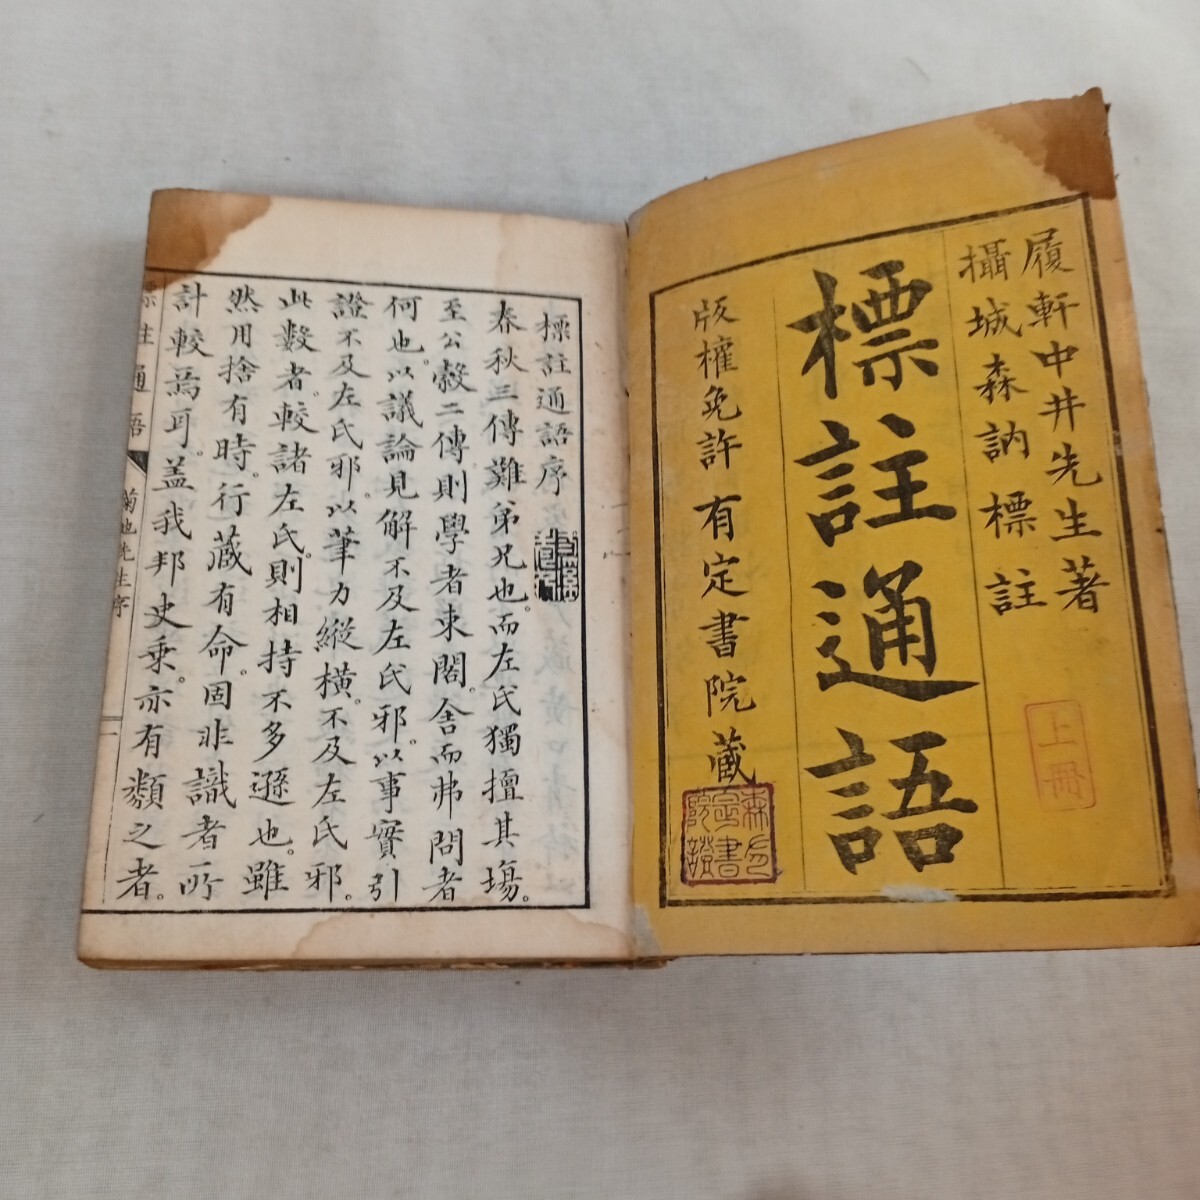 履軒中井先生著
攝城森訥標註
標註通語
版權免許 有定書院藏
上冊
標註通語序
春秋三傳難弟兄也。而左氏獨擅其場。
至公穀二傳則學者束閣。舍而弗問者
何也。以議論見解不及左氏邪。以事實引
證不及左氏邪。以筆力縱橫。不及左氏邪。
此數者。較諸左氏。則相持不多遜也。雖
然用捨有時。行藏有命。固非識者所
計較焉耳。蓋我邦史乘。亦有類之者。
標註通語 菊池先生序 一